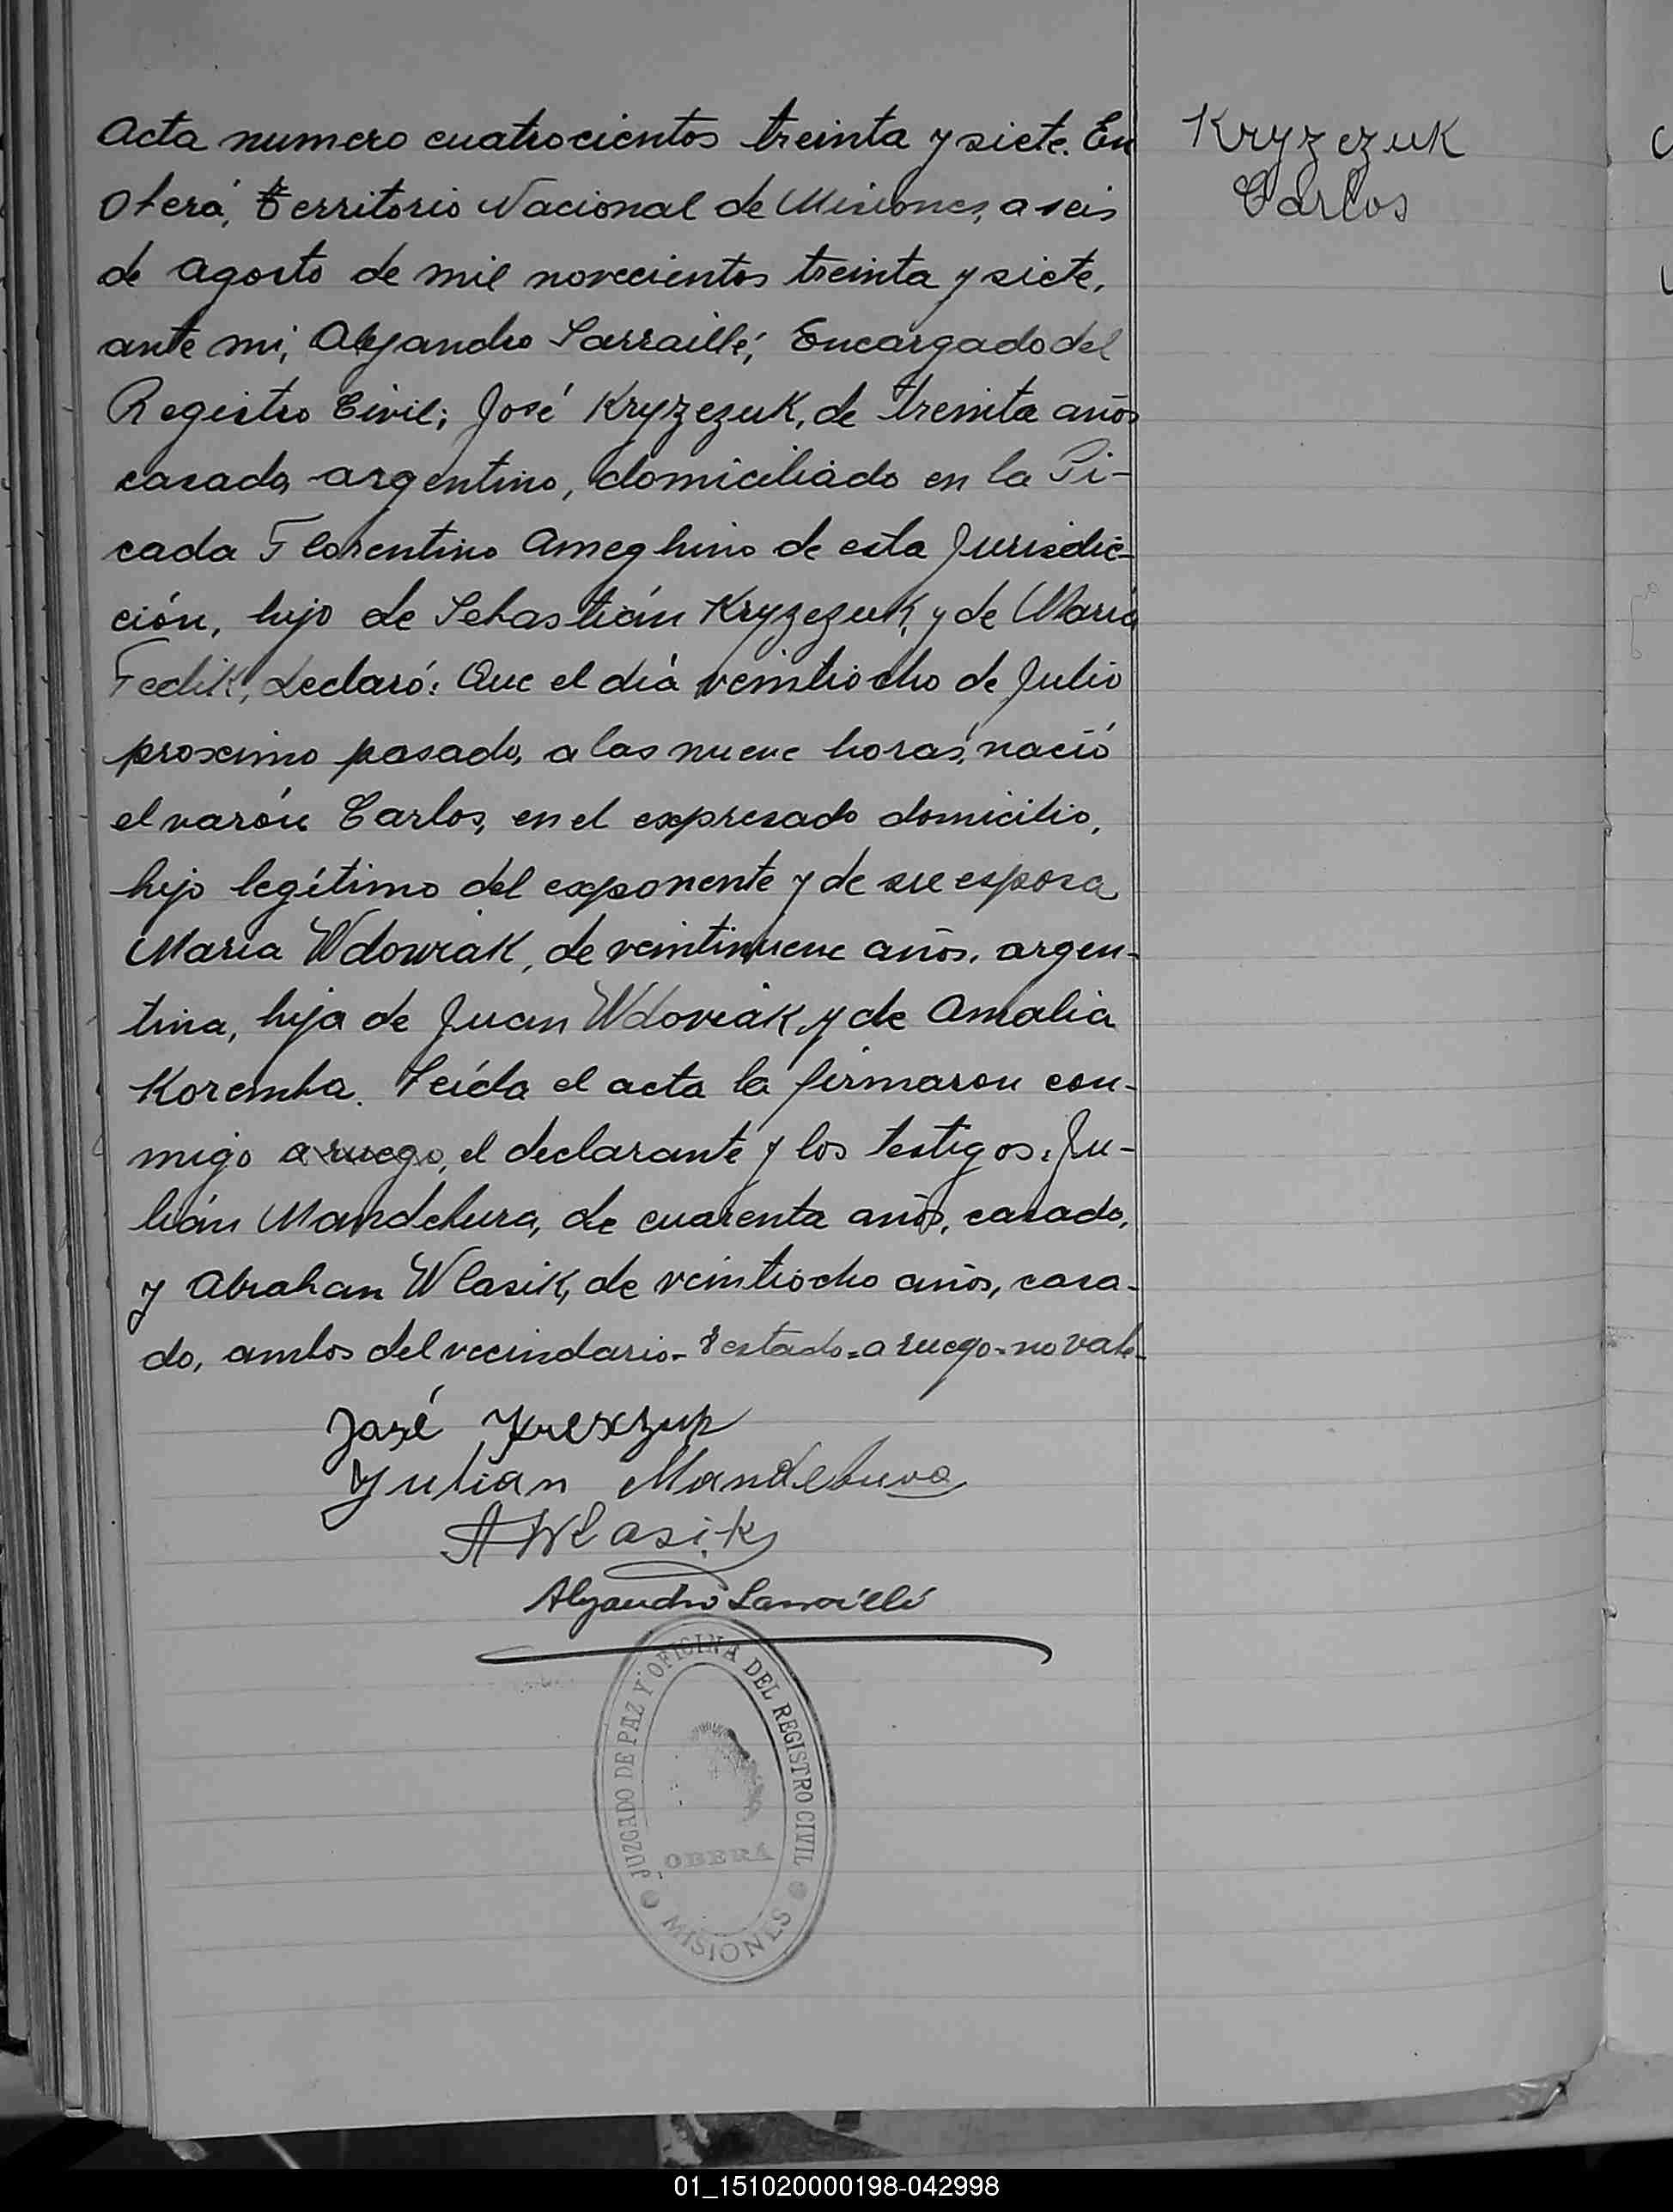 Acta numero cuatrocientos treinta y siete. En
Oberá, Territorio Nacional de Misiones, a seis
de agosto de mil novecientos treinta y siete,
ante mi, Alejandro Sarraillé, Encargado del
Registro Civil; José Kryzezuk, de treinta años
casado, argentino, domiciliado en la Pi-
cada Florentino Ameghino de esta Jurisdic-
ción, hijo de Sebastián Kryzezuk, y de María
Fedik, declaró: Que el día veintiocho de Julio
proximo pasado, a las nueve horas, nació
el varón Carlos, en el expresado domicilio,
hijo legítimo del exponente y de su esposa
María Wdowiak, de veintinueve años, argen-
tina, hija de Juan Wdoviak y de Amalia
Koremba. Leída el acta la firmaron con-
migo a ruego, el declarante y los testigos: Ju-
lián Mandebura, de cuarenta años, casado,
y Abrahan Wlasik, de veintiocho años, casa-
do, ambos del vecindario- Testado=a ruego=no vale-
José
Julian Mandebura
A Wlasik
Alejandro Sarraillé
JUZGADO DE PAZ Y OFICINA DEL REGISTRO CIVIL
OBERÁ
MISIONES
Kryzezuk
Carlos
01_151020000198-042998